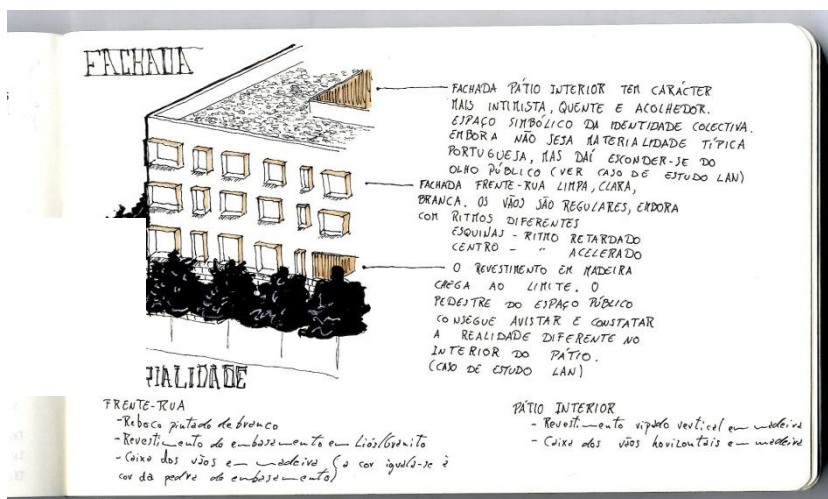 FACHADA
FACHADA PÁTIO INTERIOR TEM CARÁCTER
MAIS INTIMISTA, QUENTE E ACOLHEDOR.
ESPAÇO SIMBÓLICO DA IDENTIDADE COLECTIVA.
EMBORA NÃO SEJA MATERIALIDADE TÍPICA
PORTUGUESA, MAS DAÍ ESCONDER-SE DO
OLHO PÚBLICO (VER CASO DE ESTUDO LAN)
FACHADA FRENTE-RUA LIMPA, CLARA,
BRANCA. OS VÃOS SÃO REGULARES, EMBORA
COM RITMOS DIFERENTES
ESQUINAS - RITMO RETARDADO
CENTRO - " ACELERADO
O REVESTIMENTO EM MADEIRA
CHEGA AO LIMITE. O
PEDESTRE DO ESPAÇO PÚBLICO
CONSEGUE AVISTAR E CONSTATAR
A REALIDADE DIFERENTE NO
INTERIOR DO PÁTIO.
(CASO DE ESTUDO LAN)
RIALIDADE
FRENTE-RUA
-Reboco pintado de branco
-Revestimento do embasamento em Liós/Granito
-Caixa dos vãos em madeira (a cor iguala-se à
cor da pedra do embasamento)
PÁTIO INTERIOR
- Revestimento ripado vertical em madeira
- Caixa dos vãos horizontais em madeira